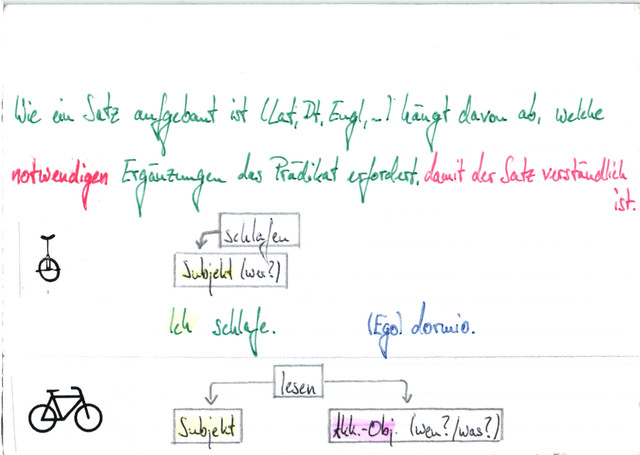 Wie ein Satz aufgebaut ist (Lat, Dt, Engl, ...) hängt davon ab, welche
notwendigen Ergänzungen das Prädikat erfordert, damit der Satz verständlich
ist.
schlafen
Subjekt (wer?)
Ich schlafe. (Ego) dormio.
lesen
Subjekt Akk.-Obj. (wen?/was?)